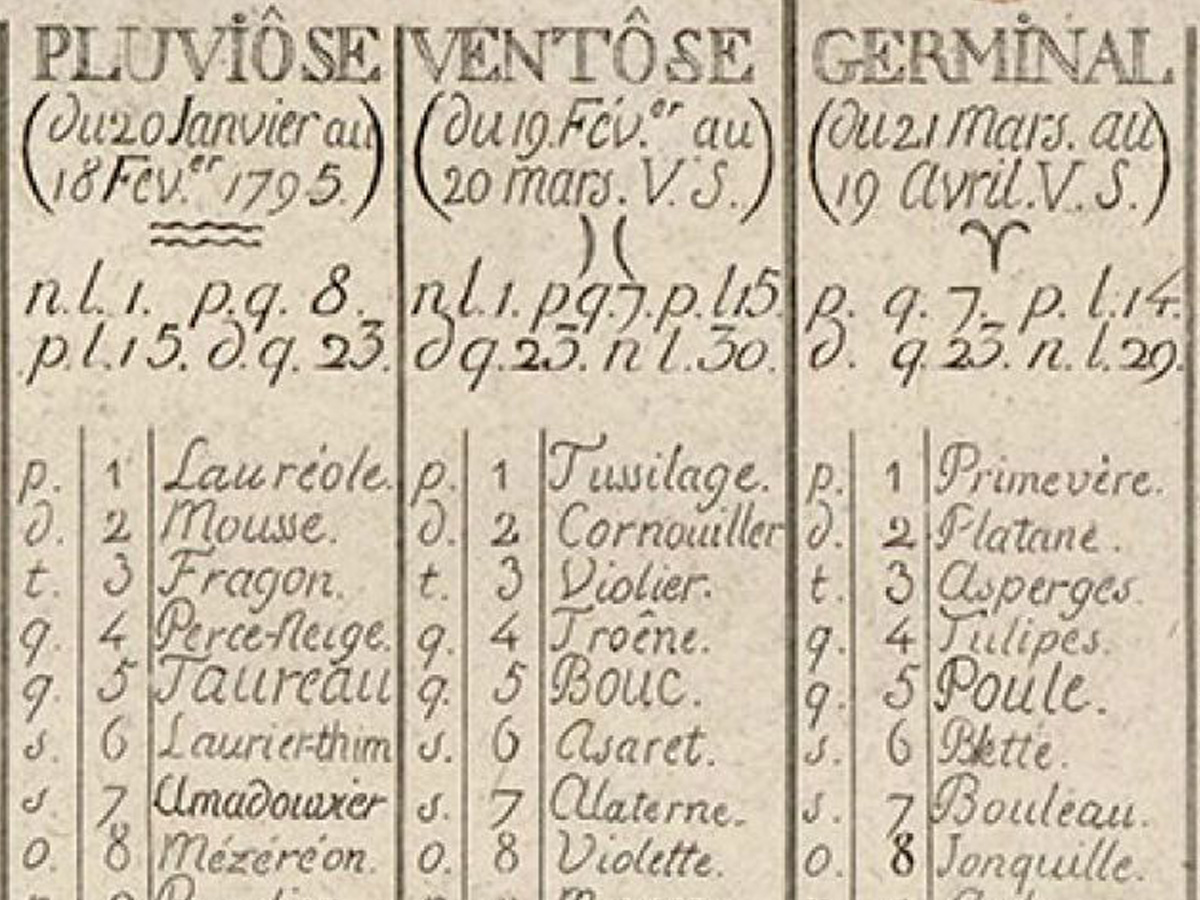 PLUVIÔSE
(du 20 Janvier au
18 Fev.er 1795.)
n.l. 1. p.q. 8.
p.l. 15. d.q. 23.
p. 1 Lauréole.
d. 2 Mousse.
t. 3 Fragon.
q. 4 Perce-Neige.
q. 5 Taureau
s. 6 Laurier-thim
s. 7 Amadouvier
o. 8 Mézéréon.
VENTÔSE
(du 19. Fév.er au
20 mars. V. S.)
n l. 1. p q. 7. p. l 15.
d q. 23. n l. 30.
p. 1 Tussilage.
d. 2 Cornouiller
t. 3 Violier.
q. 4 Troêne.
q. 5 Bouc.
s. 6 Asaret.
s. 7 Alaterne.
o. 8 Violette.
GERMINAL
(du 21 Mars. au
19 Avril. V. S.)
p. q. 7. p. l. 14.
d. q. 23. n. l. 29.
p. 1 Primevère.
d. 2 Platane.
t. 3 Asperges.
q. 4 Tulipes.
q. 5 Poule.
s. 6 Blette.
s. 7 Bouleau.
o. 8 Jonquille.